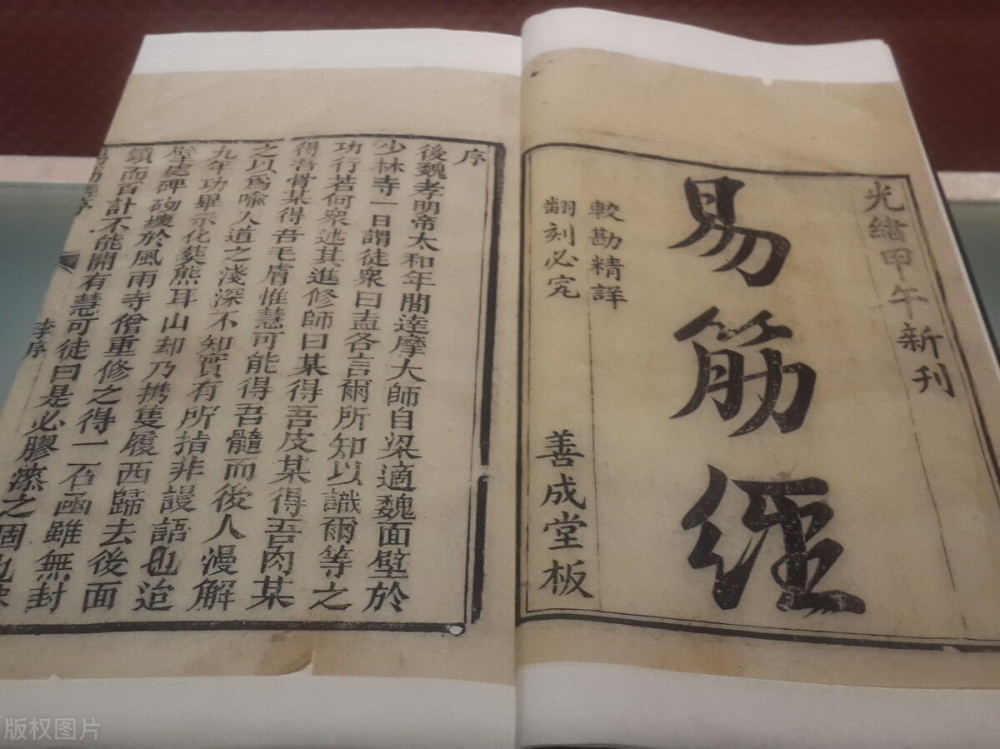 光緒甲午新刊
易筋經
較勘精詳
翻刻必究
善成堂板
序
後魏孝明帝太和年間達摩大師自梁適魏面壁於
少林寺一日謂徒衆曰盍各言爾所知以識爾等之
功行若何衆述其進修師曰某得吾皮某得吾肉某
得吾骨某得吾毛膚惟慧可能得吾髓而後人漫解
之以爲喻人道之淺深不知實有所指非謾語也迨
九年功畢示化葬熊耳山却乃携隻履西歸去後面
壁處碑砌壞於風雨寺僧重修之得一石函雖無封
鎖而百計不能開有慧可徒曰是必膠漆之固也
李序
版权图片